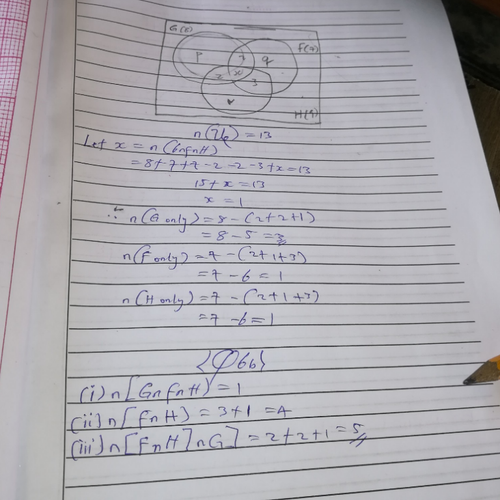 G(8)
F(7)
P
q
x
2
3
r
H(9)
n(Uε) = 13
Let x = n(GnFnH)
= 8+7+9-2-2-3+x=13
15+x=13
x = 1
∴ n(G only) = 8 - (2+2+1)
= 8 - 5 = 3
n(F only) = 7 - (2+1+3)
= 7 - 6 = 1
n(H only) = 7 - (2+1+3)
= 7 - 6 = 1
(i) n[GnFnH) = 1
(ii) n[FnH) = 3+1 = 4
(iii) n[FnH]nG] = 2+2+1 = 5